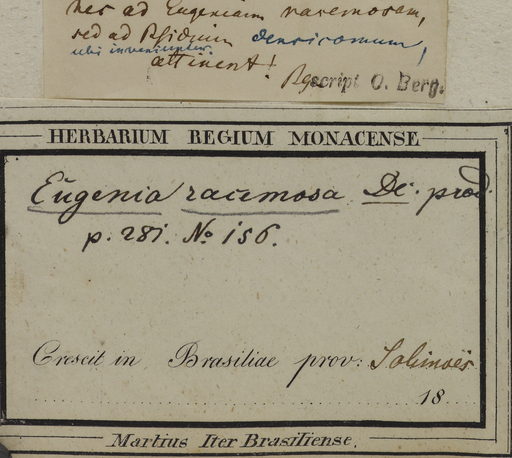 nec ad Eugeniam racemosam,
sed ad Psidium densicomum,
ubi invenitur.
attinent!
scrips. O. Berg.
HERBARIUM REGIUM MONACENSE
Eugenia racemosa DC. prod.
p. 281. No. 156.
Crescit in Brasiliae prov: Solimoës
18
Martius Iter Brasiliense.